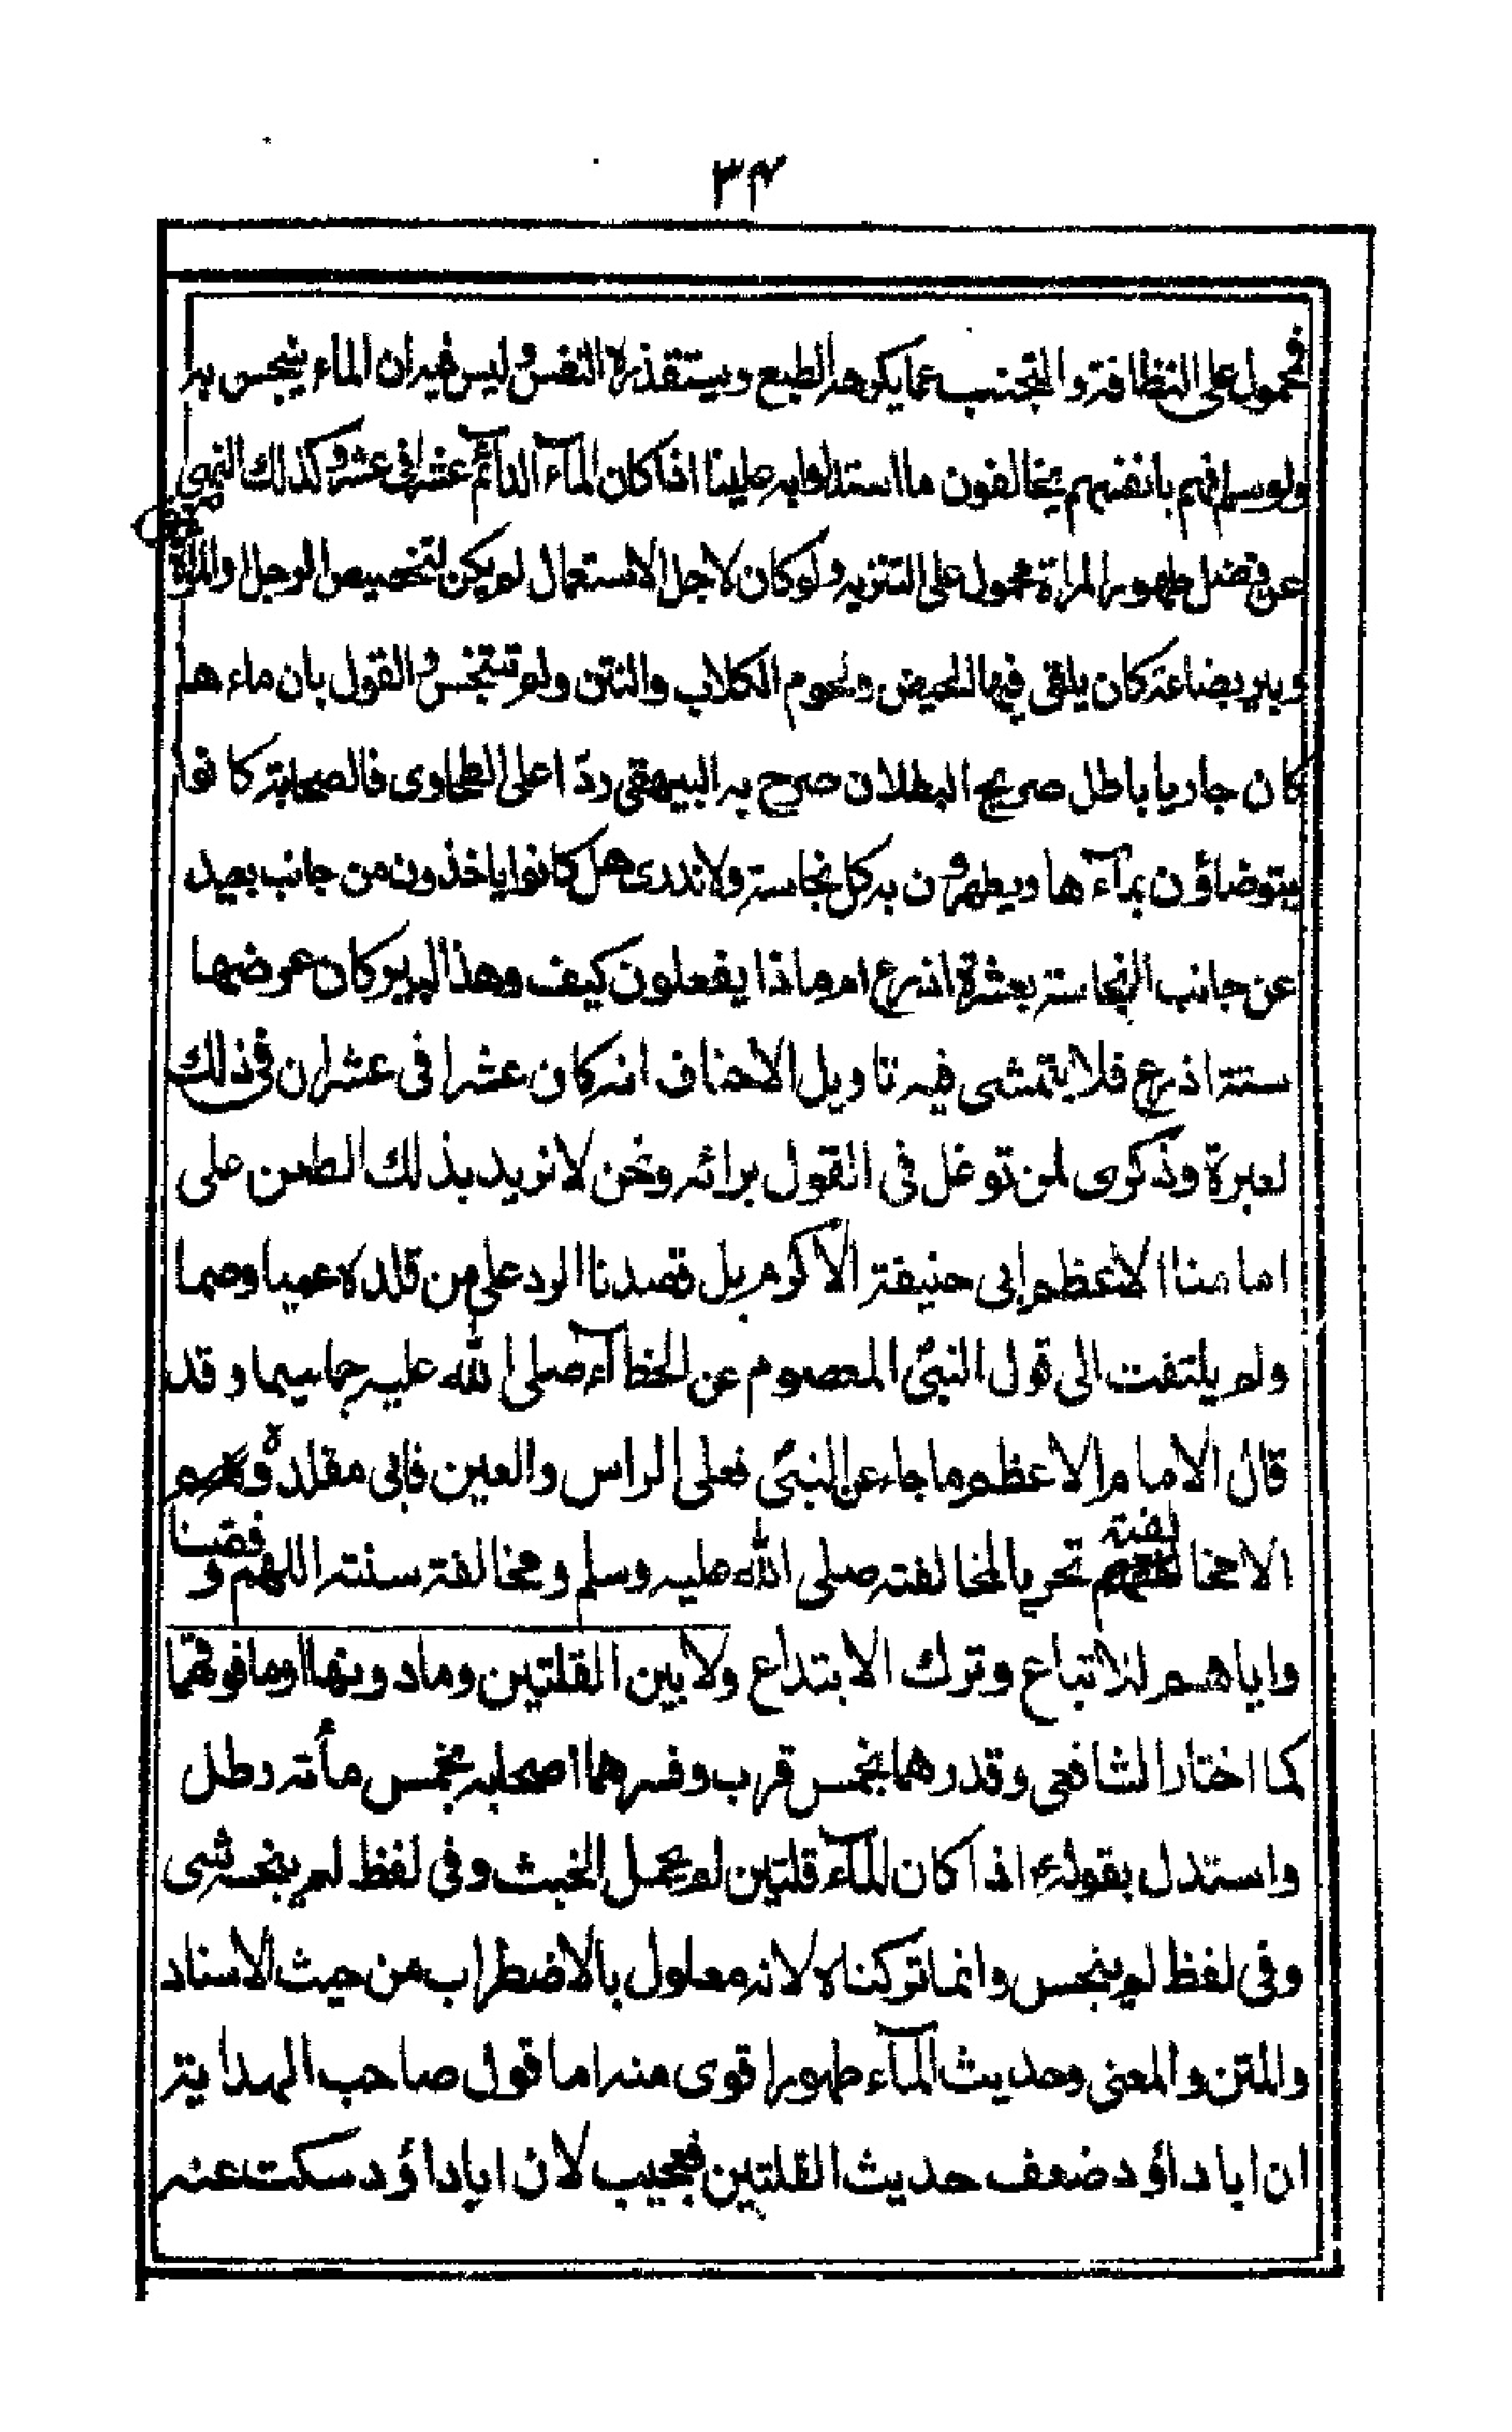 ٣٤
فمحمول على النظافة والتجنب عما يكرهه الطبع ويستقذره النفس وليس فيه ان الماء ينجس به
ولو سلم فهم بانفسهم يخالفون ما استدلوا به علينا اذا كان المآء الدآئم عشرا فى عشر وكذلك النهى
عن فضل طهور المراة محمول على التنزيه ولو كان لاجل الاستعمال لم يكن لتخصيص الرجل والمراة
وبير بضاعة كان يلقى فيها الحيض ولحوم الكلاب والنتن ولم تتنجس والقول بان ماء ها
كان جاريا باطل صريح البطلان صرح به البيهقى ردّا على الطحاوى فالصحابة كانوا
يتوضاؤن بمآء ها ويطهرون به كل نجاسة ولا ندرى هل كانوا ياخذون من جانب بعيد
عن جانب النجاسة بعشرة اذرع ام ماذا يفعلون كيف وهذا البير كان عرضها
ستة اذرع فلا يتمشى فيه تاويل الاحناف انه كان عشرا فى عشر ان فى ذلك
لعبرة وذكرى لمن توغل فى القول برائه ونحن لا نريد بذلك الطعن على
امامنا الاعظم ابى حنيفة الاكرم بل قصدنا الرد على من قلده عميا وصما
ولم يلتفت الى قول النبىّ المعصوم عن الخطآء صلى الله عليه جاسيما وقد
قال الامام الاعظم ما جاء عن النبىّ فعلى الراس والعين فابى مقلدوه
الا مخالفته تحريا لمخالفته صلى الله عليه وسلم ومخالفة سنته اللهم وفقنا
واياهم للاتباع وترك الابتداع ولا بين القلتين وما دونها اوما فوقهما
كما اختار الشافعى وقدرهما بخمس قرب وفسرهما اصحابه بخمس مأته رطل
واستدل بقوله ع اذا كان المآء قلتين لم يحمل الخبث وفى لفظ لم ينجسه شى
وفى لفظ لم ينجس وانما تركناه لانه معلول بالاضطراب من حيث الاسناد
والمتن والمعنى وحديث المآء طهور اقوى منه اما قول صاحب الهداية
ان ابا داؤد ضعف حديث القلتين فعجيب لان ابا داؤد سكت عنه